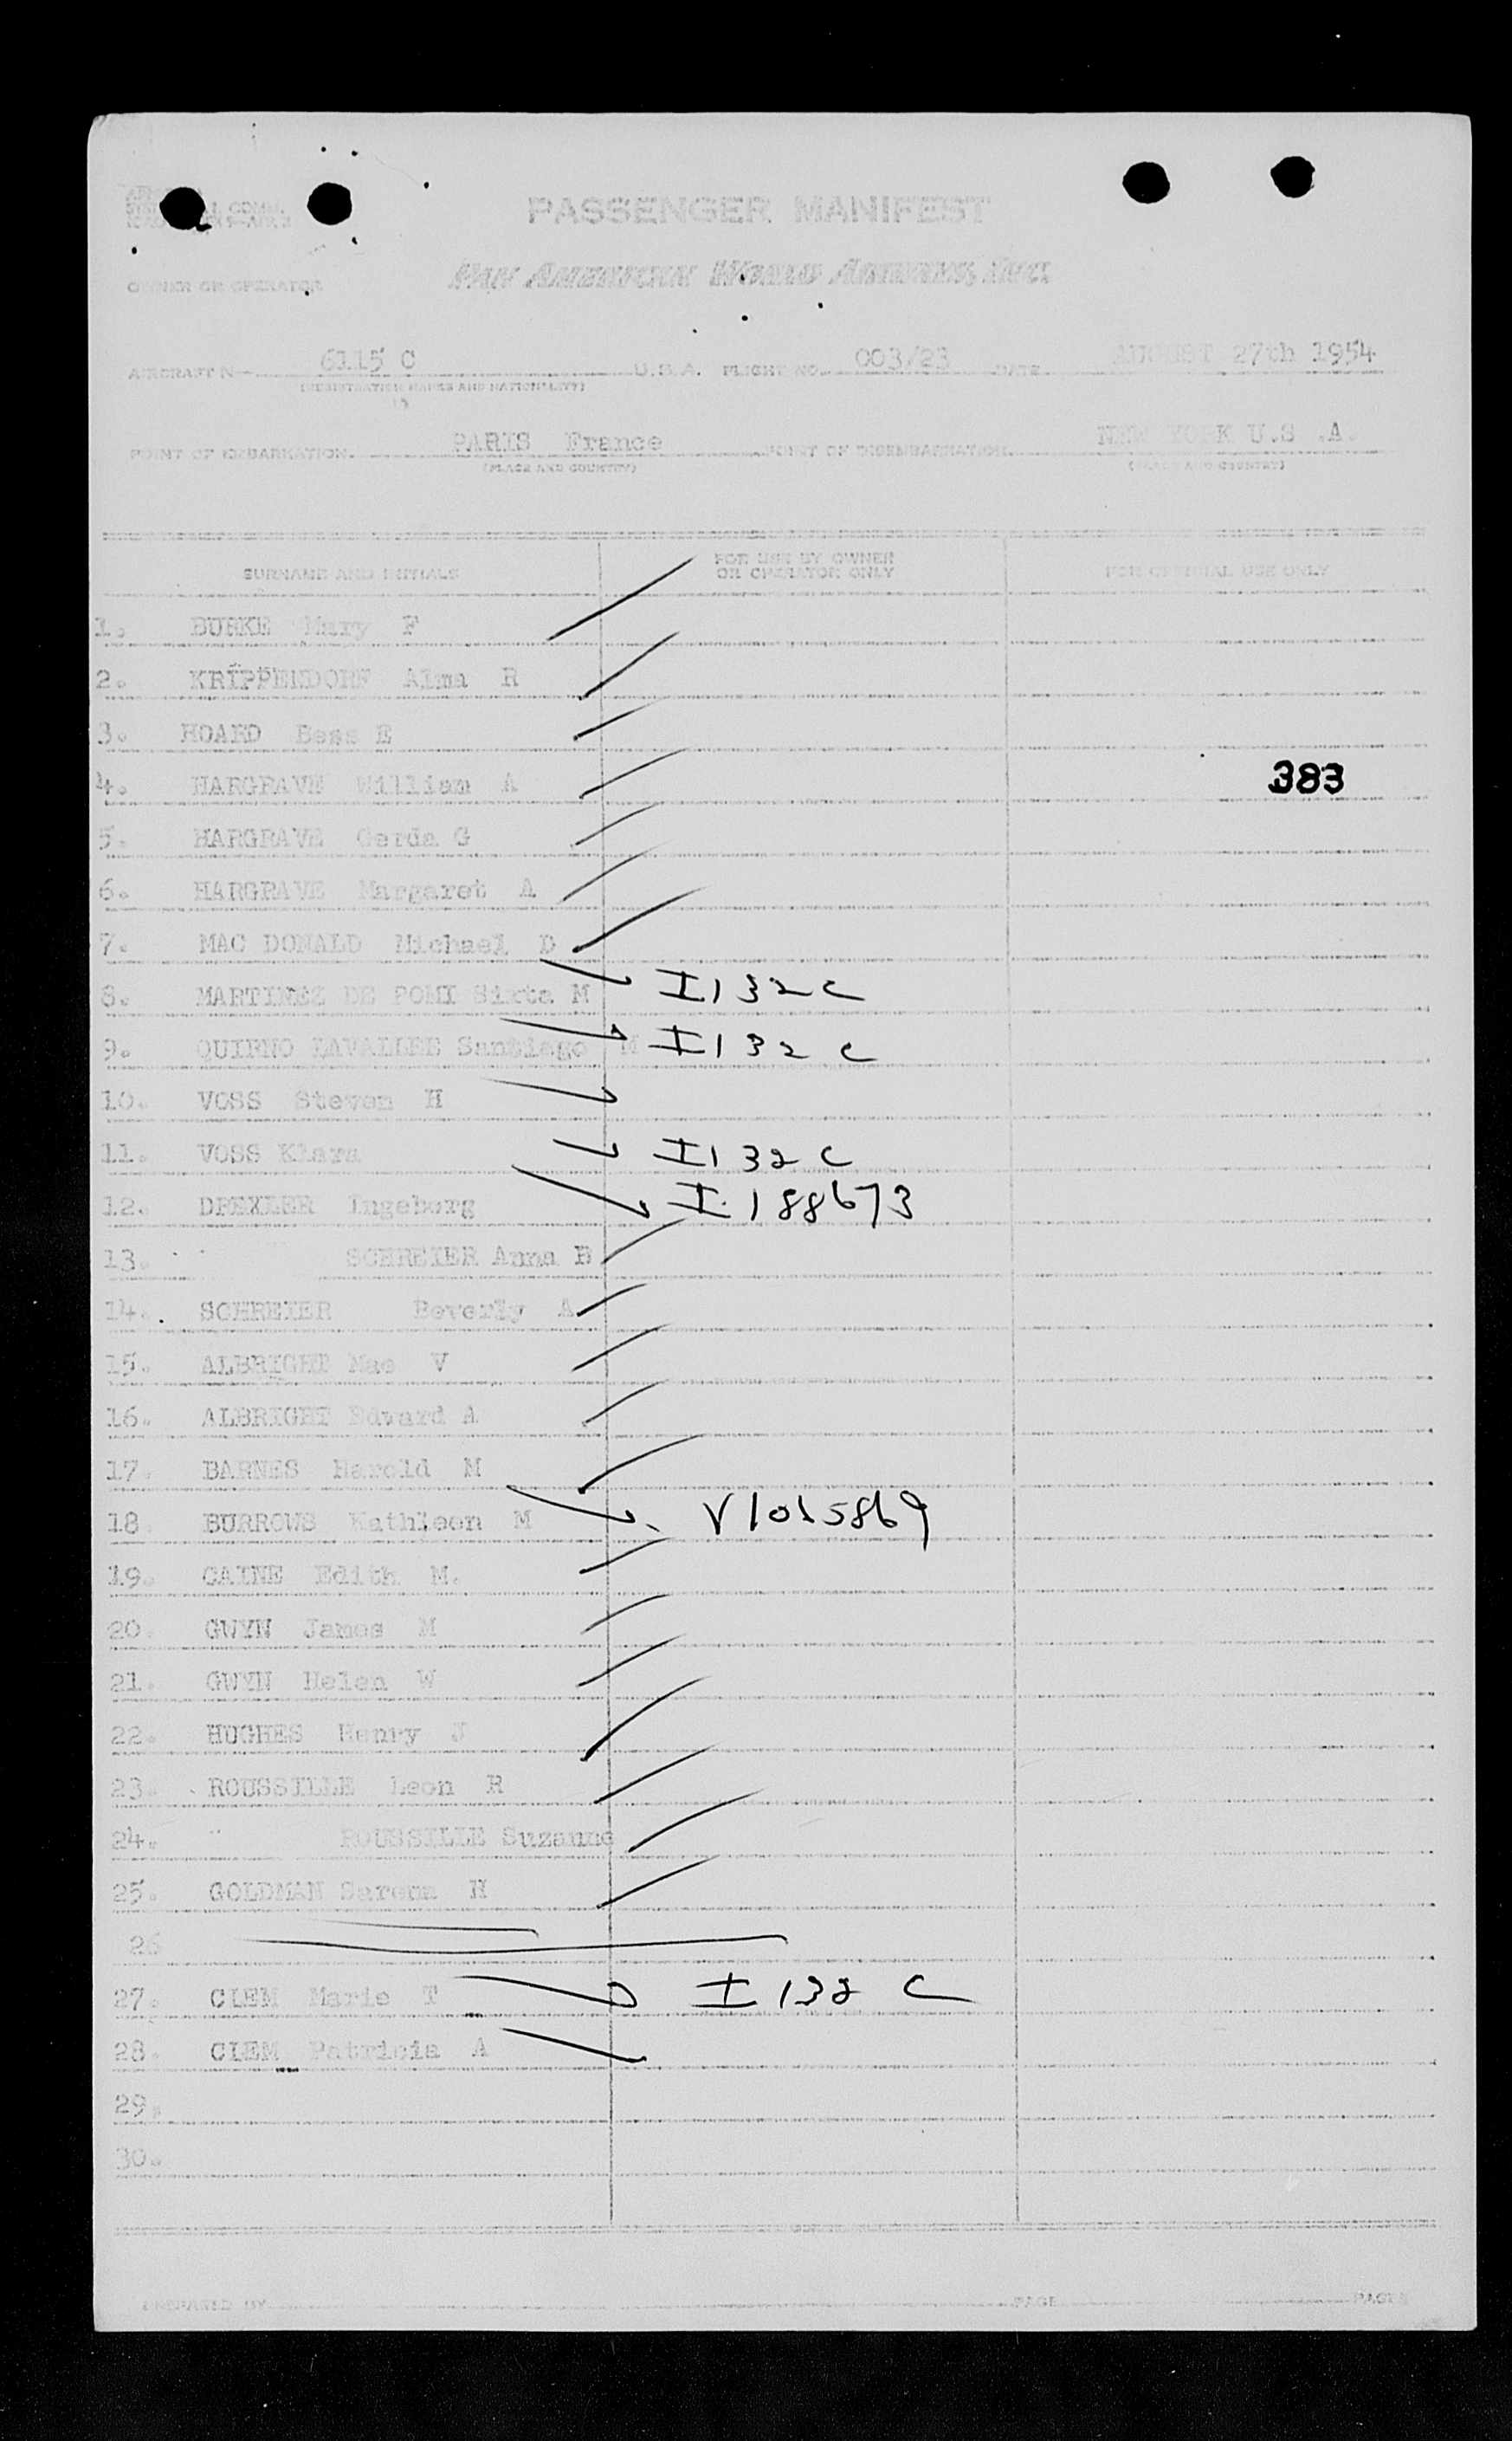 PASSENGER MANIFEST
PAN AMERICAN WORLD AIRWAYS, INC.
OWNER OR OPERATOR
AIRCRAFT N 6115 C U.S.A. FLIGHT NO. 003/23 DATE AUGUST 27th 1954
(REGISTRATION MARKS AND NATIONALITY)
POINT OF EMBARKATION. PARIS France POINT OF DISEMBARKATION. NEW YORK U.S .A.
(PLACE AND COUNTRY) (PLACE AND COUNTRY)
SURNAME AND INITIALS FOR USE BY OWNER OR OPERATOR ONLY FOR OFFICIAL USE ONLY
1. BURKE Mary F
2. KRIPPENDORF Alma R
3. HOARD Bess E
4. HARGRAVE William A 383
5. HARGRAVE Gerda G
6. HARGRAVE Margaret A
7. MAC DONALD Michael D
8. MARTINEZ DE POMI Sixta M I 132 C
9. QUIRNO LAVALLEE Santiago M I 132 C
10. VOSS Steven H
11. VOSS Klara I 132 C
12. DREXLER Ingeborg I. 188673
13. SCHREIER Anna B
14. SCHREIER Beverly A
15. ALBRIGHT Mae V
16. ALBRIGHT Edward A
17. BARNES Harold M
18. BURROWS Kathleen M V1015869
19. CAINE Edith M.
20. GWYN James M
21. GWYN Helen W
22. HUGHES Henry J
23. ROUSSILLE Leon R
24. ROUSSILLE Suzanne
25. GOLDMAN H
26
27. CLEM Marie T I 132 C
28. CLEM Patricia A
29.
30.
PREPARED BY PAGE PAGES